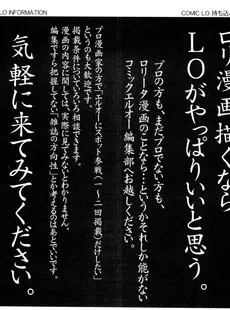 LO INFORMATION
COMIC LO 持ち込み
ロリ漫画描くなら
LOがやっぱりいいと思う。
プロの方も、まだプロでない方も、
ロリータ漫画のことなら…というかそれしか能がない
コミックエルオー編集部へお越しください。
プロ漫画家の方で「エルオーにスポット参戦(一~二回掲載)だけしたい」
というのも大歓迎です。
掲載条件についていろいろ相談できます。
漫画の内容に関しては、実際に見てみないとわかりません。
編集ですら把握してない「雑誌の方向性」とか考えるのはあとでいいです。
気軽に来てみてください。